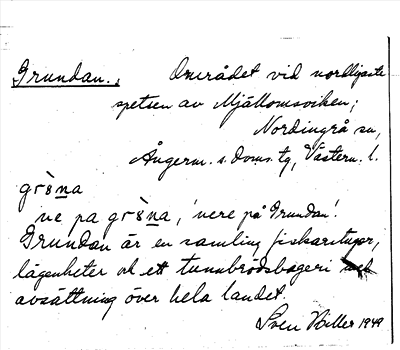 Grundan.: Området vid nordligaste
spetsen av Mjällomsviken;
Nordingrå sn,
Ångerm. s. doms. tg, Västern. l.
grὸ̀na
ne pa grὸ̀na, 'nere på Grundan'.
Grundan är en samling fiskarstugor,
lägenheter och ett tunnbrödsbageri med
avsättning över hela landet.
Sven Biller 1949